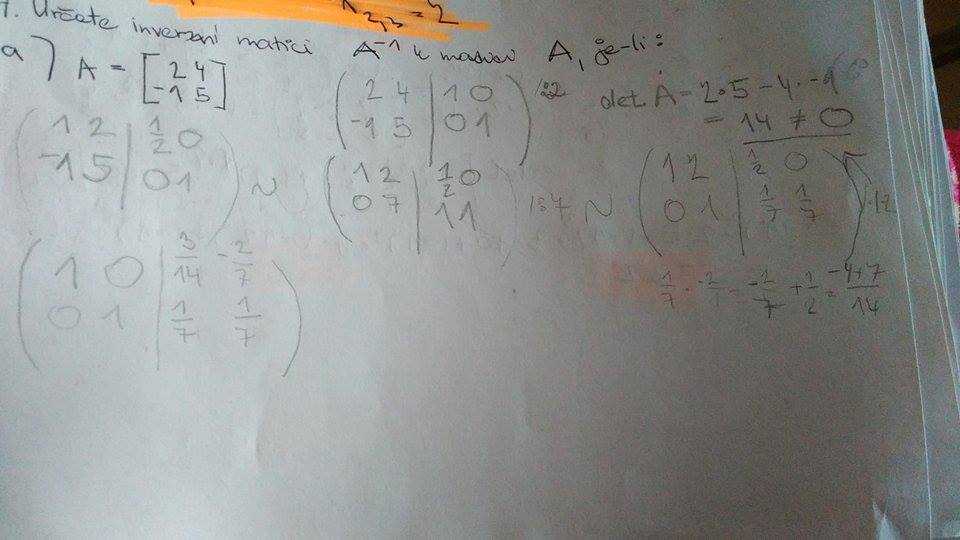 λ2,3 = 2
7. Určete inverzní matici A⁻¹ k matici A, je-li:
a) A = [2 4
-1 5]
(2 4 | 1 0
-1 5 | 0 1) /:2
det. A = 2·5 - 4·-1
= 14 ≠ 0
(1 2 | 1/2 0
-1 5 | 0 1) ~
(1 2 | 1/2 0
0 7 | 1 1) /:7 ~
(1 2 | 1/2 0
0 1 | 1/7 1/7)
(1 0 | 3/14 -2/7
0 1 | 1/7 1/7)
+ 1/2 = -4+7/14